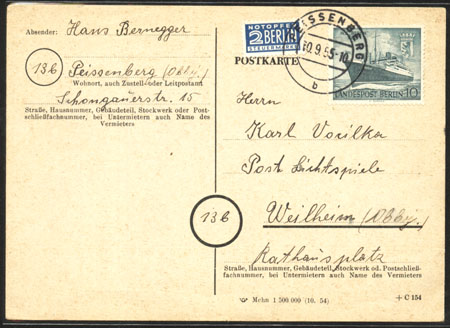 Absender: Hans Bernegger
13b
Peissenberg (Obby.)
Wohnort, auch Zustell- oder Leitpostamt
Schongauerstr. 15
Straße, Hausnummer, Gebäudeteil, Stockwerk oder Post-
schließfachnummer, bei Untermietern auch Name des
Vermieters
NOTOPFER
2 BERLIN
STEUERMARKE
POSTKARTE
PEISSENBERG
30.9.55-10
b
DEUTSCHE BUNDESPOST BERLIN 10
Herrn
Karl Vorilka
Post Lichtspiele
13b
Weilheim (Obby.)
Rathausplatz
Straße, Hausnummer, Gebäudeteil, Stockwerk od. Postschließ-
fachnummer, bei Untermietern auch Name des Vermieters
Mchn 1 500 000 (10. 54)
+ C 154